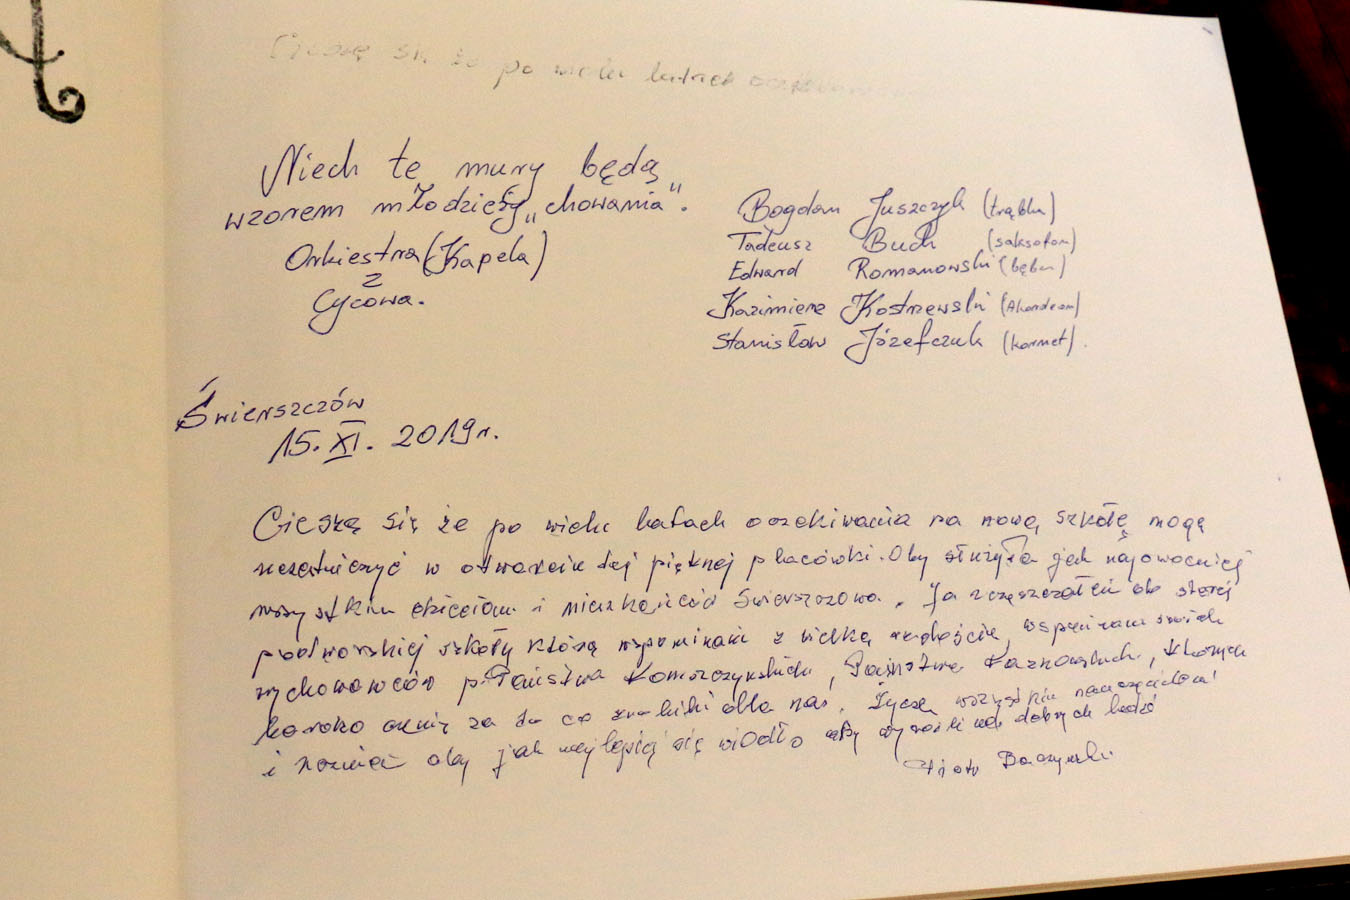 Cieszę się że po wielu latach oczekiwania
Niech te mury będą
wzorem młodzieży „chowania”.
Orkiestra (Kapela)
z
Cycowa.
Bogdan Juszczyk (trąbka)
Tadeusz Buch (saksofon)
Edward Romanowski (bęben)
Kazimierz Kostrzewski (Akordeon)
Stanisław Józefczuk (kornet).
Świerszczów
15. XI. 2019 r.
Cieszę się że po wielu latach oczekiwania na nową szkołę mogę
uczestniczyć w otwarciu tej pięknej placówki. Oby służyła jak najowocniej
wszystkim dzieciom i mieszkańców Świerszczowa. Ja uczęszczałem do starej
podworskiej szkoły którą wspominam z wielką, wspieram swoich
wychowawców p. Państwa Komorczyńskich, Państwa Kaznowskich, których
za to co zrobili dla nas. Życzę wszystkim nauczycielom
i aby jak najlepiej się wiodło aby dobrych ludzi
Piotr